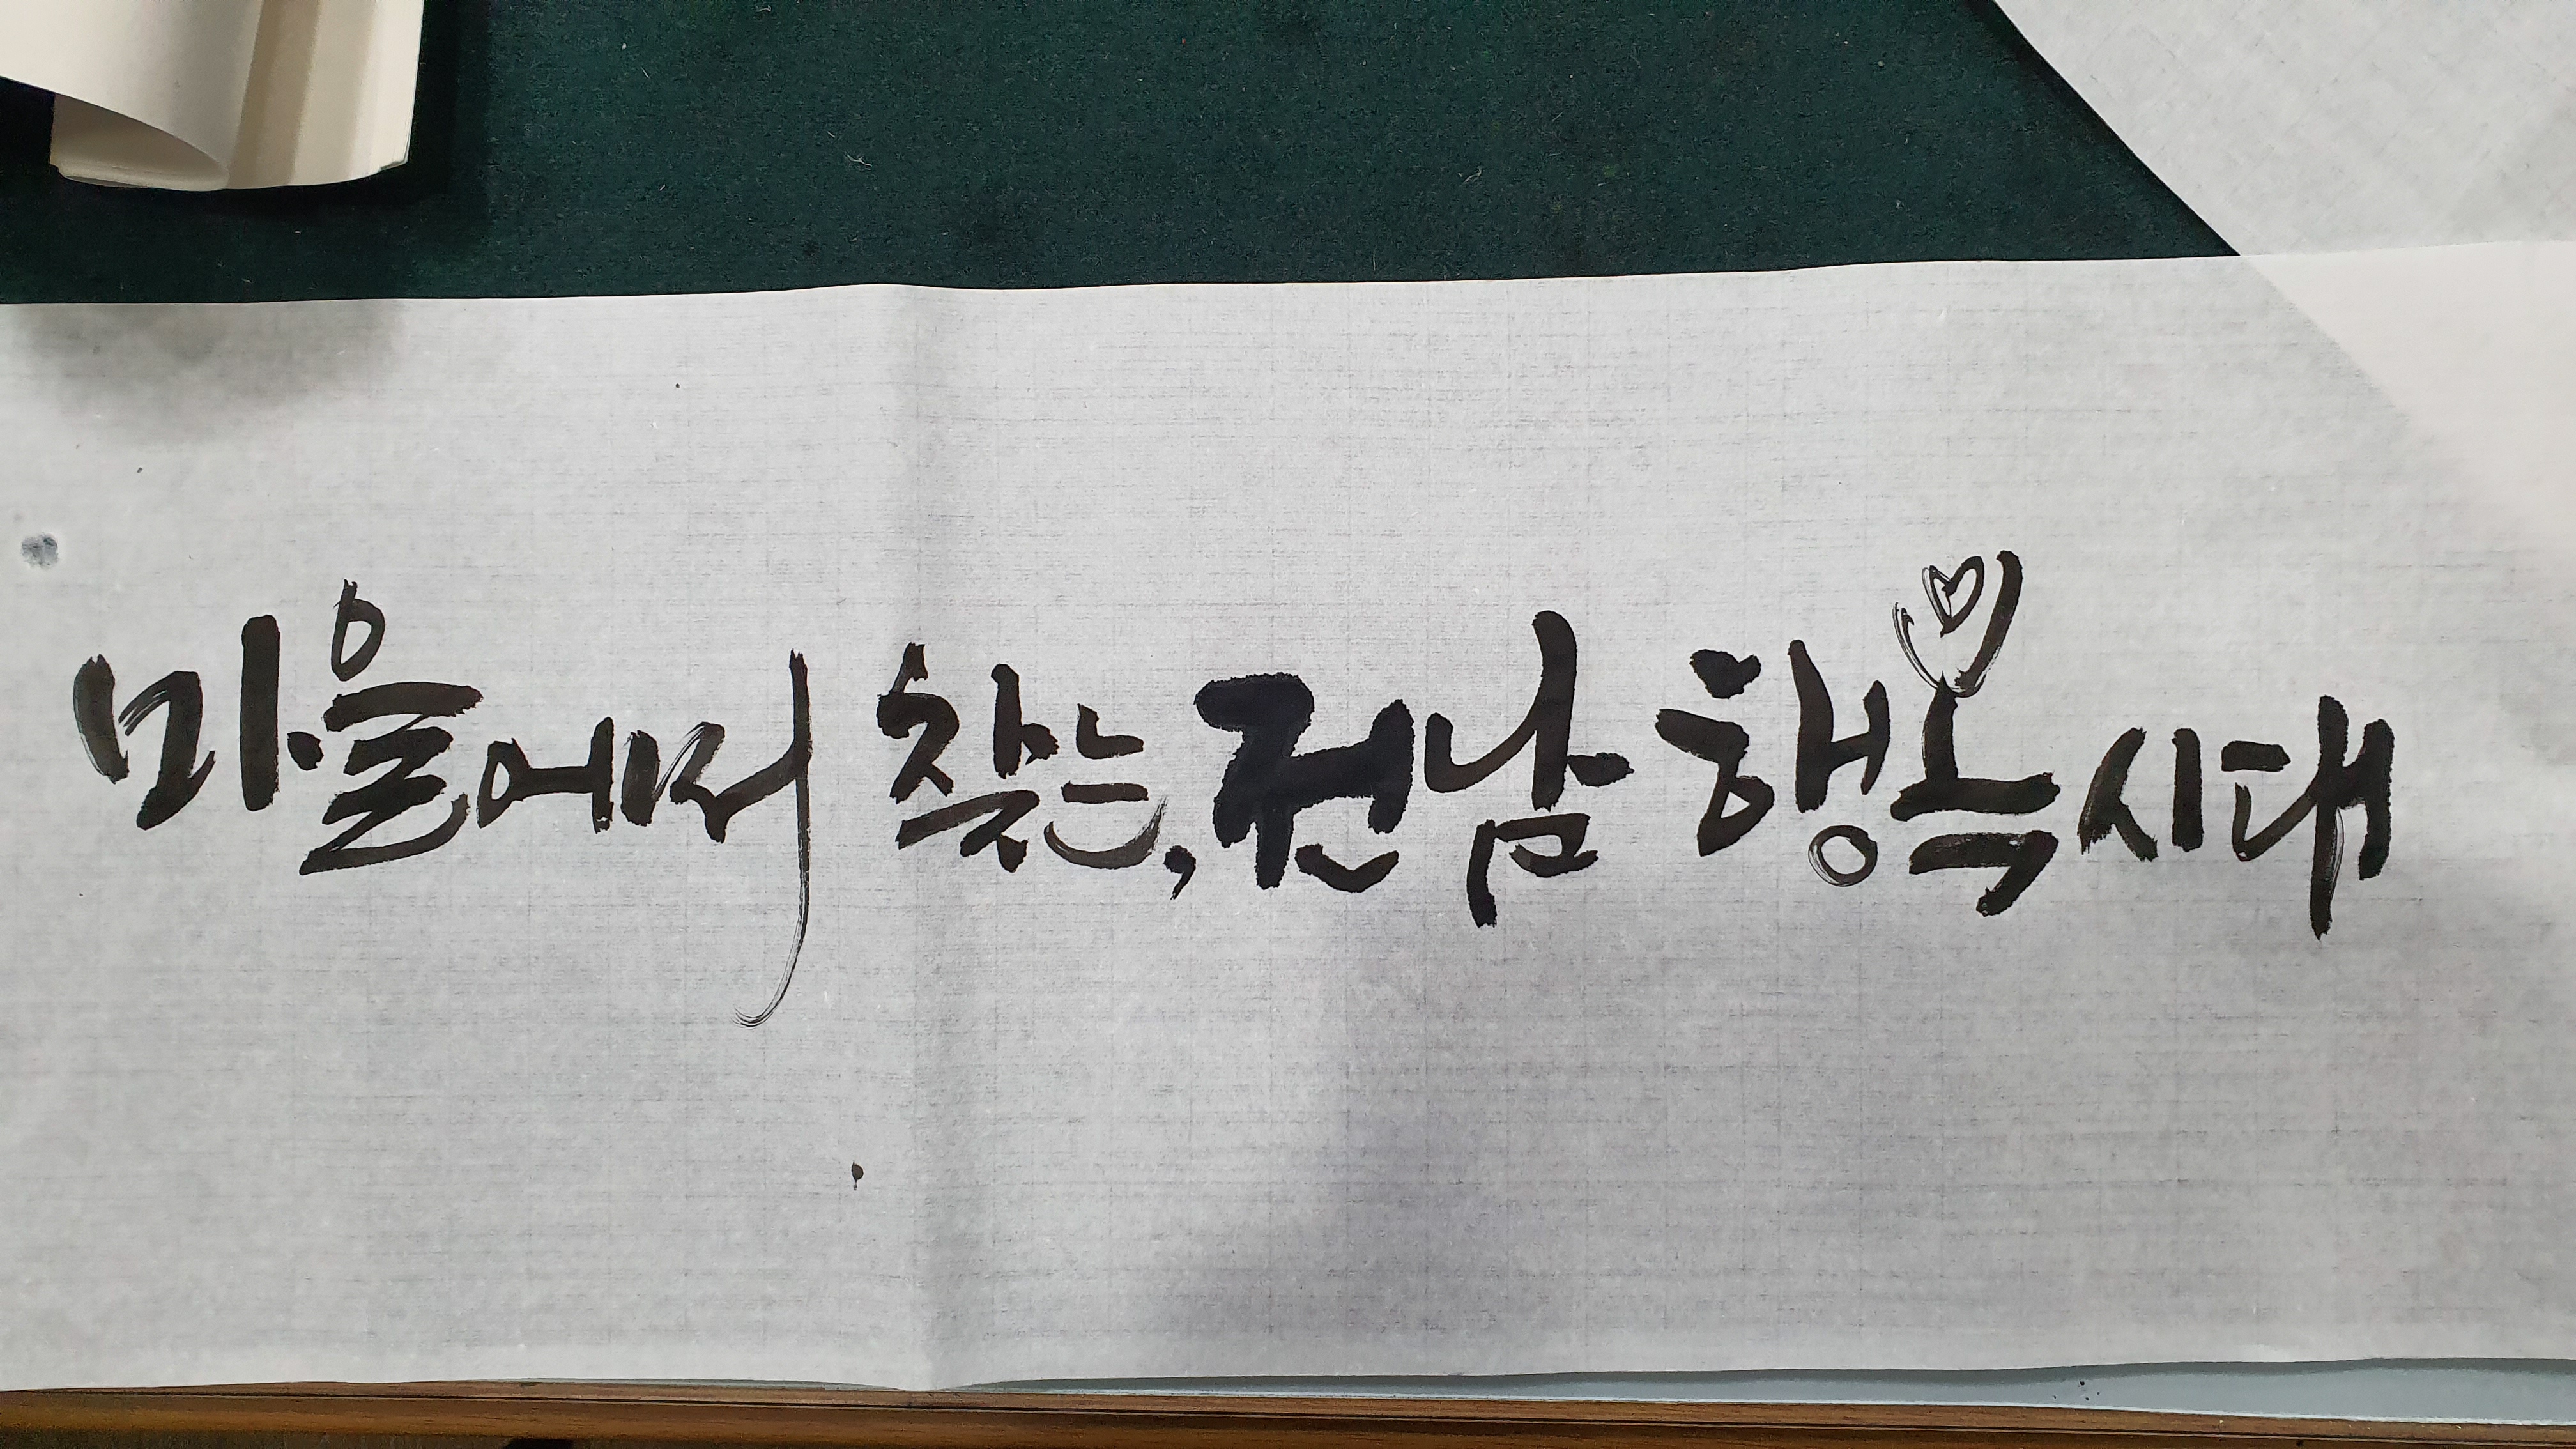 마을에서 찾는, 전남 행복 시대